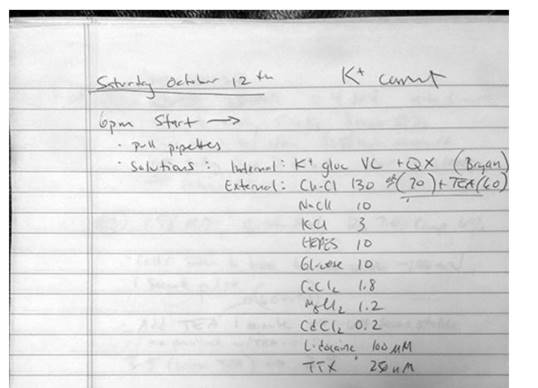 Saturday October 12th K+ current
6pm Start →
· pull pipettes
· Solutions : Internal: K+ gluc VC + QX (Bryan)
External: Ch-Cl 130 (70) + TEA (60)
NaCl 10
KCl 3
HEPES 10
Glucose 10
CaCl2 1.8
MgCl2 1.2
CdCl2 0.2
Lidocaine 100 µM
TTX 250 nM